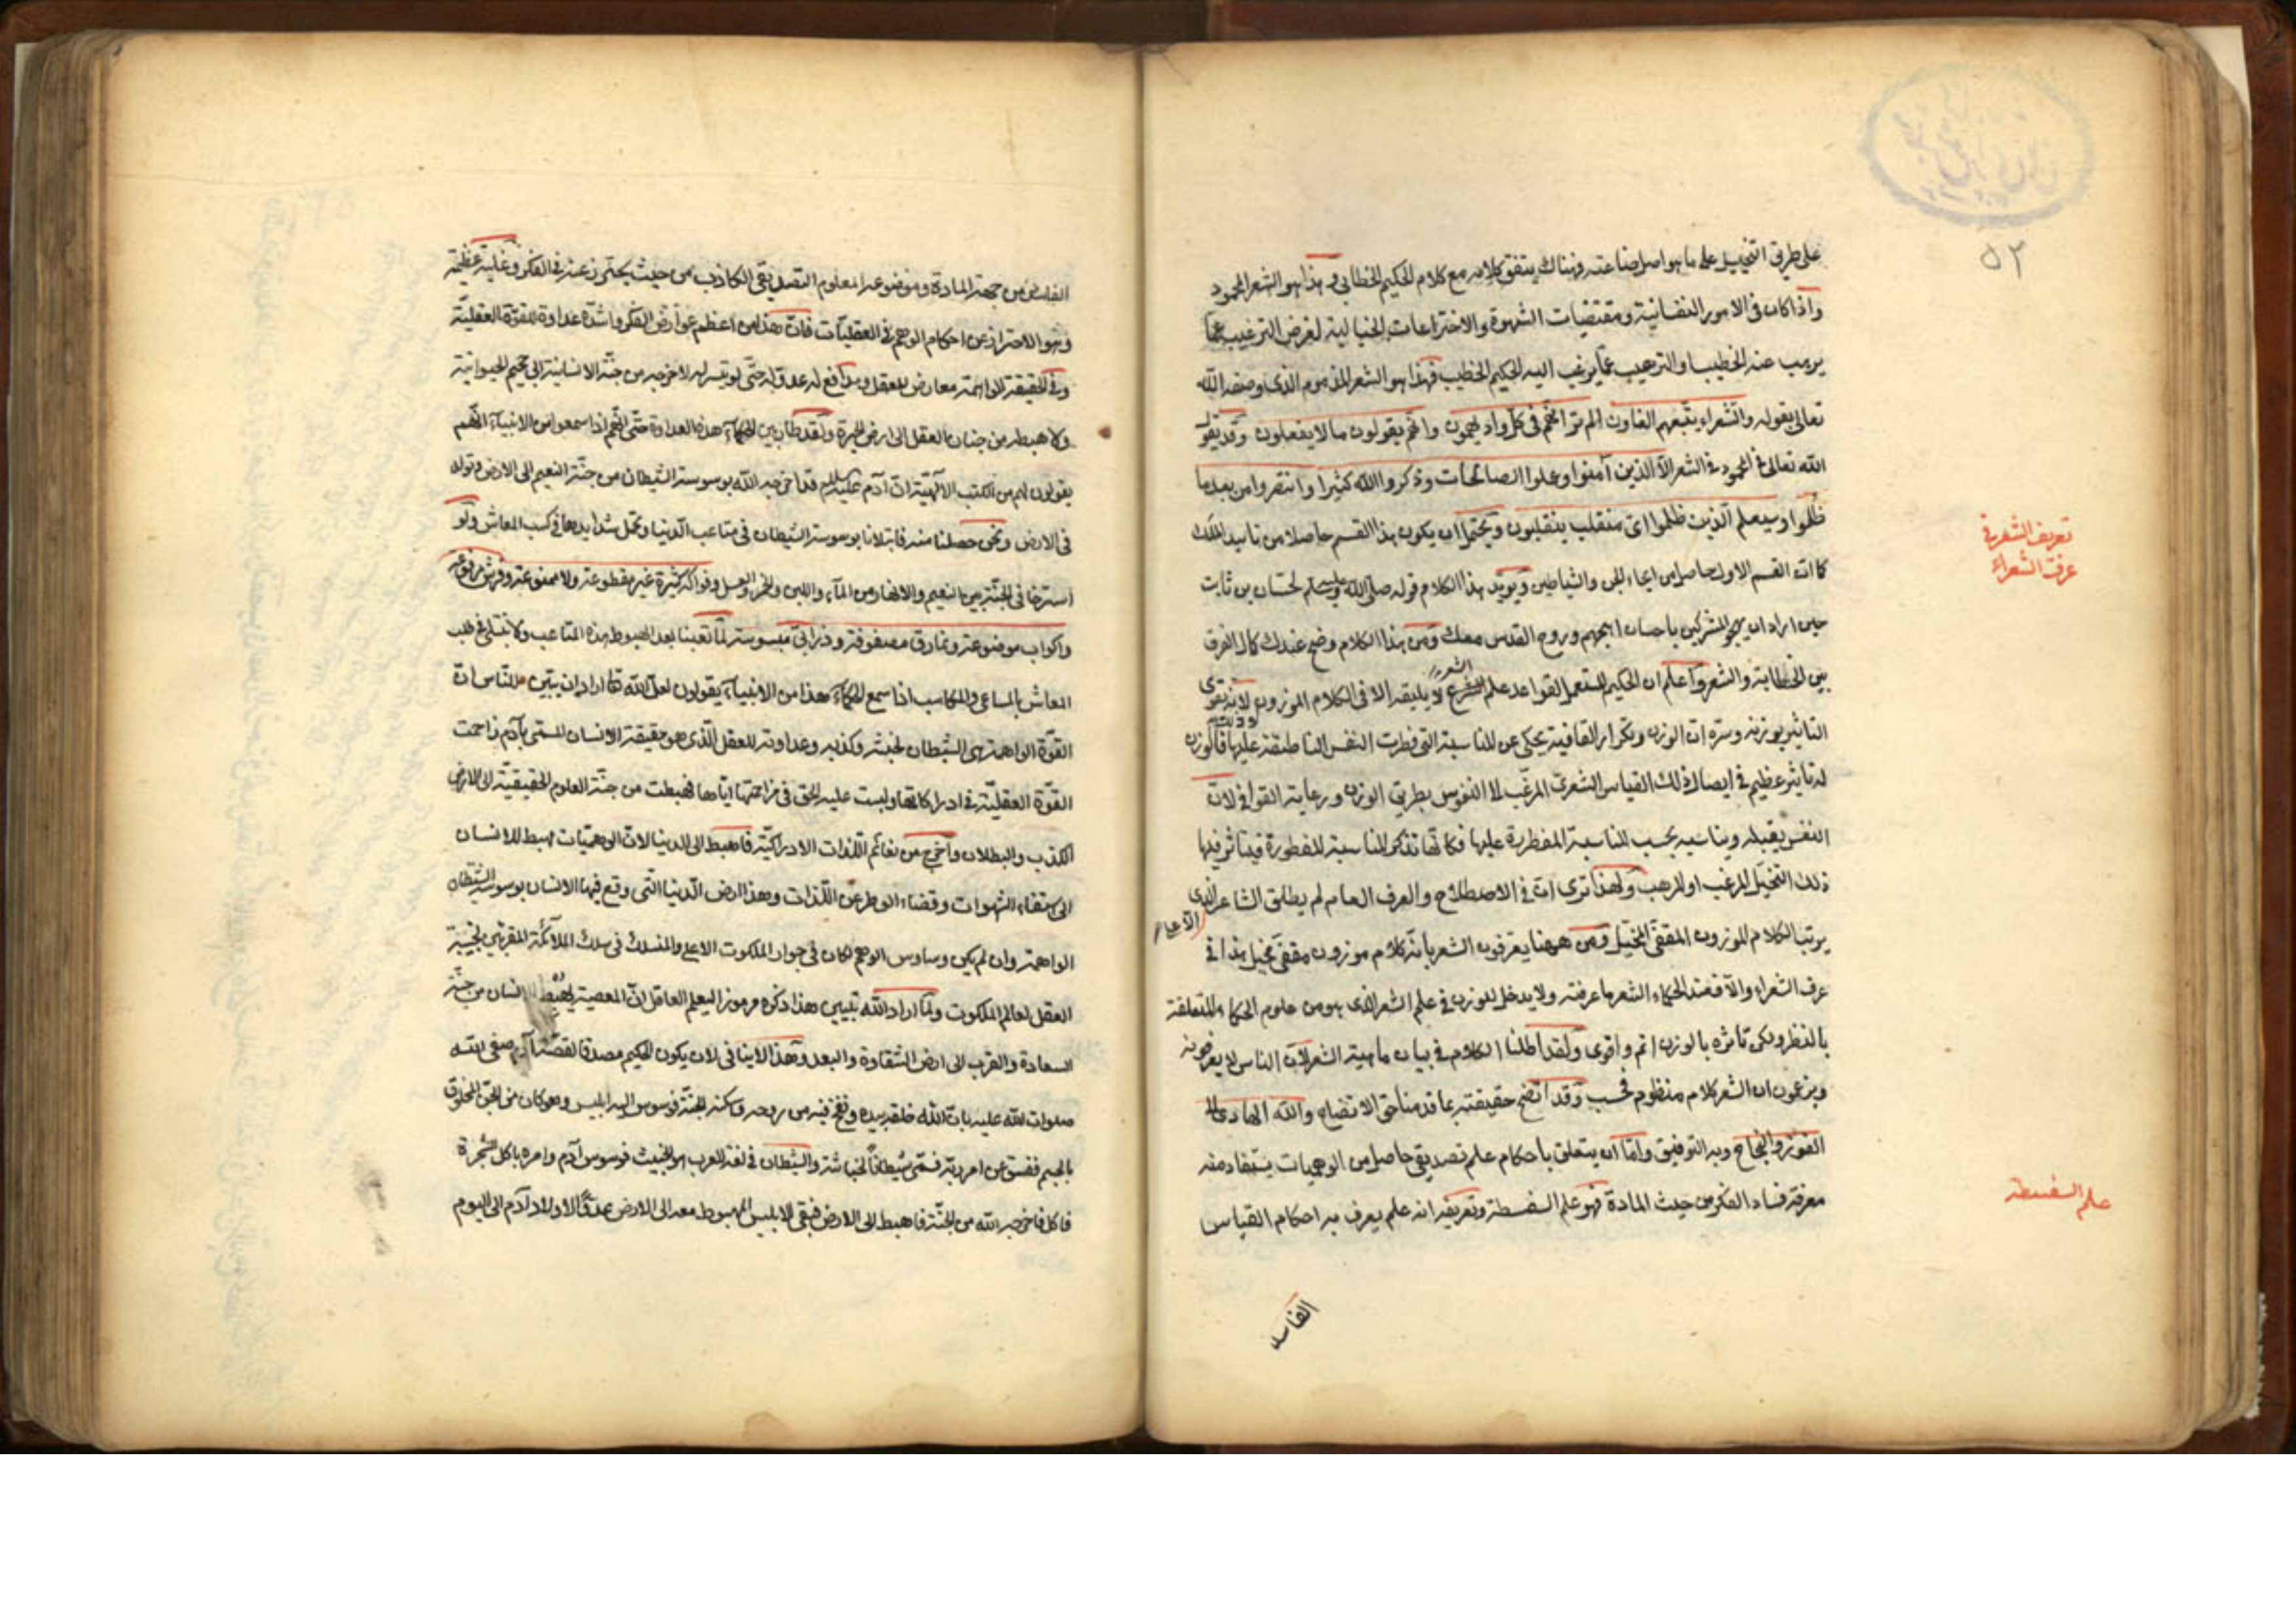 ٥٢
على طريق التخييل على ما هو اصل صناعته فهناك يتفق كلامه مع كلام الحكيم الخطابى وهذا هو الشعر المحمود
واذا كان فى الامور النفسانية ومقتضيات الشهوة والاختراعات الخيالية لغرض الترغيب عما
يرهب عنه الخطيب والترهيب عما يرغب اليه الحكيم الخطيب فهذا هو الشعر المذموم الذى وصفه الله
تعالى بقوله والشعراء يتبعهم الغاون الم تر انهم فى كل واد يهيمون وانهم يقولون ما لا يفعلون وقد يقول
الله تعالى فى المحمود فى الشعر الا الذين آمنوا وعملوا الصالحات وذكروا الله كثيرا وانتقروا من بعد ما
ظلموا وسيعلم الذين ظلموا اى منقلب ينقلبون ويحتمل ان يكون هذا القسم حاصلا من تاييد الملك
كما ان القسم الاول حاصل من ايماء الجن والشياطين ويؤيد هذا الكلام قوله صلى الله عليه وسلم لحسان بن ثابت
حين اراد ان يهجو المشركين يا حسان اهجهم وروح القدس معك ومن هذا الكلام وضح عندك كمال الفرق
بين الخطابة والشعر واعلم ان الحكيم المستعمل لقواعد علم الشعر لا يليقه الا فى الكلام الموزون لانه يقوى
التاثير بوزنه وسره ان الوزن وتكرار القافية يحكى عن المناسبة التى فطرت النفس الناطقة عليها فالوزن
له تاثير عظيم فى ايصال ذلك القياس الشعرى المرغب الى النفوس بطريق الوزن ورعاية القوافى لان
النفس يقبله ويناسبه بحسب المناسبة المفطورة عليها فكانها تذكر المناسبة المفطورة فيتاثر فيها
ذلك التخيل المرغب او المرهب ولهذا ترى ان فى الاصطلاح والعرف العام لم يطلق الشاعر الا على الذى
يرتب الكلام الموزون المقفى المخيل ومن ههنا يعرفون الشعر بانه كلام موزون مقفى مخيل هذا فى
عرف الشعراء والا فعند الحكماء الشعر ما عرفته ولا يدخل للوزن فى علم الشعر الذى هو من علوم الحكماء المتعلقة
بالنظر ولكن تاثره بالوزن اتم واقوى ولقد اطلنا الكلام فى بيان ماهية الشعر لان الناس لا يعرفونه
ويزعمون ان الشعر كلام منظوم فحسب وقد اتضح حقيقته بما قدمنا حق الاتضاح والله الهادى الى
الفوز والنجاح وبه التوفيق واما ان يتعلق باحكام علم تصديقى حاصل من الوهميات يستفاد منه
معرفة فساد الفكر من حيث المادة فهو علم السفسطة وتعريفه انه علم يعرف به احكام القياس
الفاسد
تعريف الشعر فى
عرف الشعراء
علم السفسطه
الفاسد من جهة المادة وموضوعه المعلوم التصديقى الكاذب من حيث يحترز عنه فى الفكر وغايته عظيمة
وهو الاحتراز عن احكام الوهم فى العقليات فان هذا من اعظم عوارض الفكر واشد عداوة للقوة العقلية
وفى الحقيقة الواهمة معارض للعقل ومدافع له عدو له حتى لو تيسر له لاخرجه من جنة الانسانية الى جحيم الحيوانية
ولاهبطه من جنان العقل الى ارض الحيرة ولقد طال بين الحكماء هذه العداوة حتى انهم اذا سمعوا من الانبياء انهم
يقولون لهم من الكتب الالهية ان آدم عليه السلام قد اخرجه الله بوسوسة الشيطان من جنة النعيم الى الارض وتولد
فى الارض ونحن حصلنا منه فابتلانا بوسوسة الشيطان فى متاعب الدنيا وتحمل شدايدها فى كسب المعاش ولو
استرخا فى الجنة بين النعيم والانهار من الماء واللبن والخمر والعسل وفواكه كثيرة غير مقطوعة ولا ممنوعة وفرش مرفوعه
واكواب موضوعة ونمارق مصفوفة وزرابى مبسوسة لما تعبنا بعد الهبوط بهذه المتاعب ولا نبتلى فى طلب
المعاش بالمساعى والمكاسب اذا سمع الحكماء هذا من الانبياء يقولون لعل الله تعالى اراد ان يبين للناس ان
القوة الواهمة هى الشيطان لخبثه وكذبه وعداوته للعقل الذى هو حقيقة الانسان المسمى بآدم زاحمت
القوة العقلية فى ادراكاتها ولبست عليه الحق فى مزاحمتها اياها فهبطت من جنة العلوم الحقيقية الى الارض
الكذب والبطلان واخرج من نعائم اللذات الادراكية فاهبط الى الدنيا لان الوهميات مهبط للانسان
الى استيفاء الشهوات وقضاء الوطر عن اللذات وهذا ارض الدنيا التى وقع فيها الانسان بوسوسة الشيطان
الواهمة وان لم يكن وساوس الوهم لكان فى جوار الملكوت الاعلى والمنسلك فى سلك الملائكة المقربين
العقل لعالم الملكوت ولما اراد الله تبيين هذا ذكره مرموزا ليعلم العاقل ان المعصية يهبط الانسان من جنة
السعادة والقرب الى ارض الشقاوة والبعد وهذا لا ينافى لان يكون الحكيم مصدقا لقصة آدم صفى الله
صلوات الله عليه بان الله خلقه بيده ونفخ فيه من روحه واسكنه الجنة فوسوس اليه ابليس وهو كان من الجن المخلوق
بالجسم ففسق عن امر ربه فسمى شيطانا لخباثته والشيطان فى لغة العرب هو الخبيث فوسوس آدم وامره باكل الشجرة
فاكل فاخرجه الله من الجنة فاهبط الى الارض فبقى لابليس الهبوط معه الى الارض عدوا لاولاد آدم الى اليوم